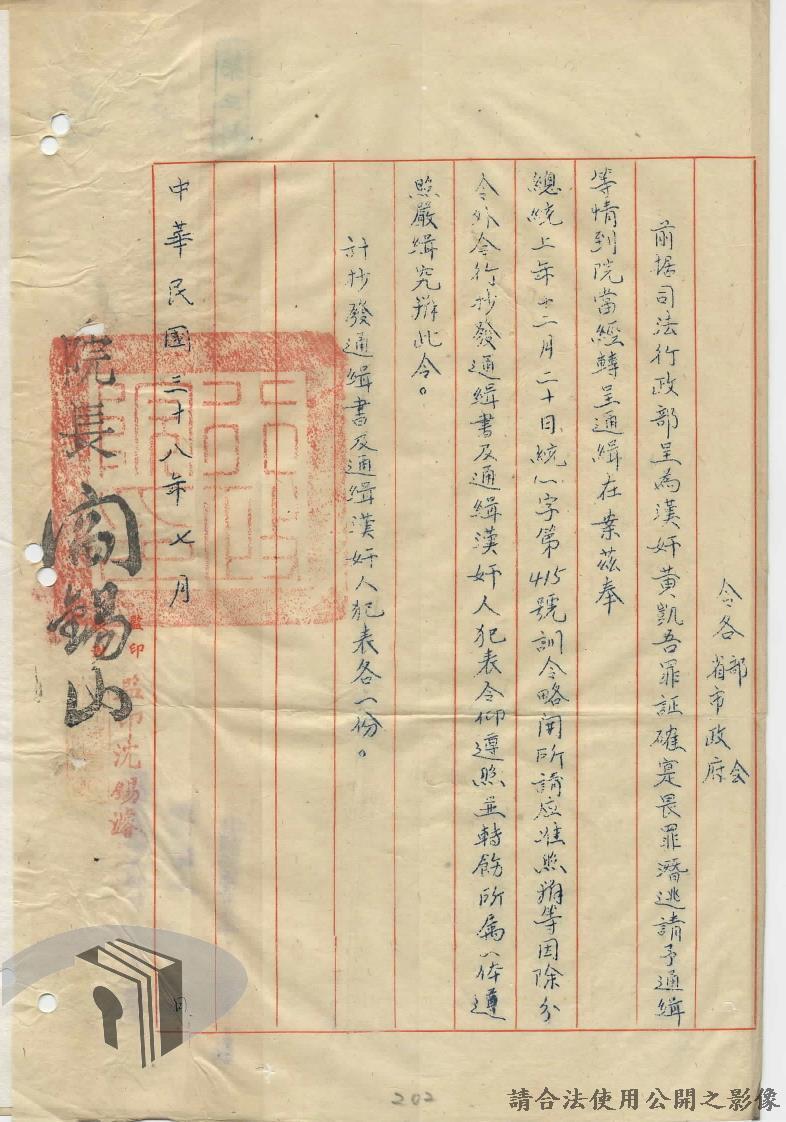 令各部會
省市政府
前据司法行政部呈為漢奸黃凱吾罪証確寔畏罪潛逃請予通緝
等情到院當經轉呈通緝在案茲奉
總統上年十二月二十日統一字第415號訓令略開所請应准照辦等因除分
令外合行抄發通緝書及通緝漢奸人犯表令仰遵照並轉飭所屬一体遵
照嚴緝究辦此令。
計抄發通緝書及通緝漢奸人犯表各一份。
中華民國三十八年七月 日
院長閻錫山
監印
監印沈錫瑃
202
請合法使用公開之影像